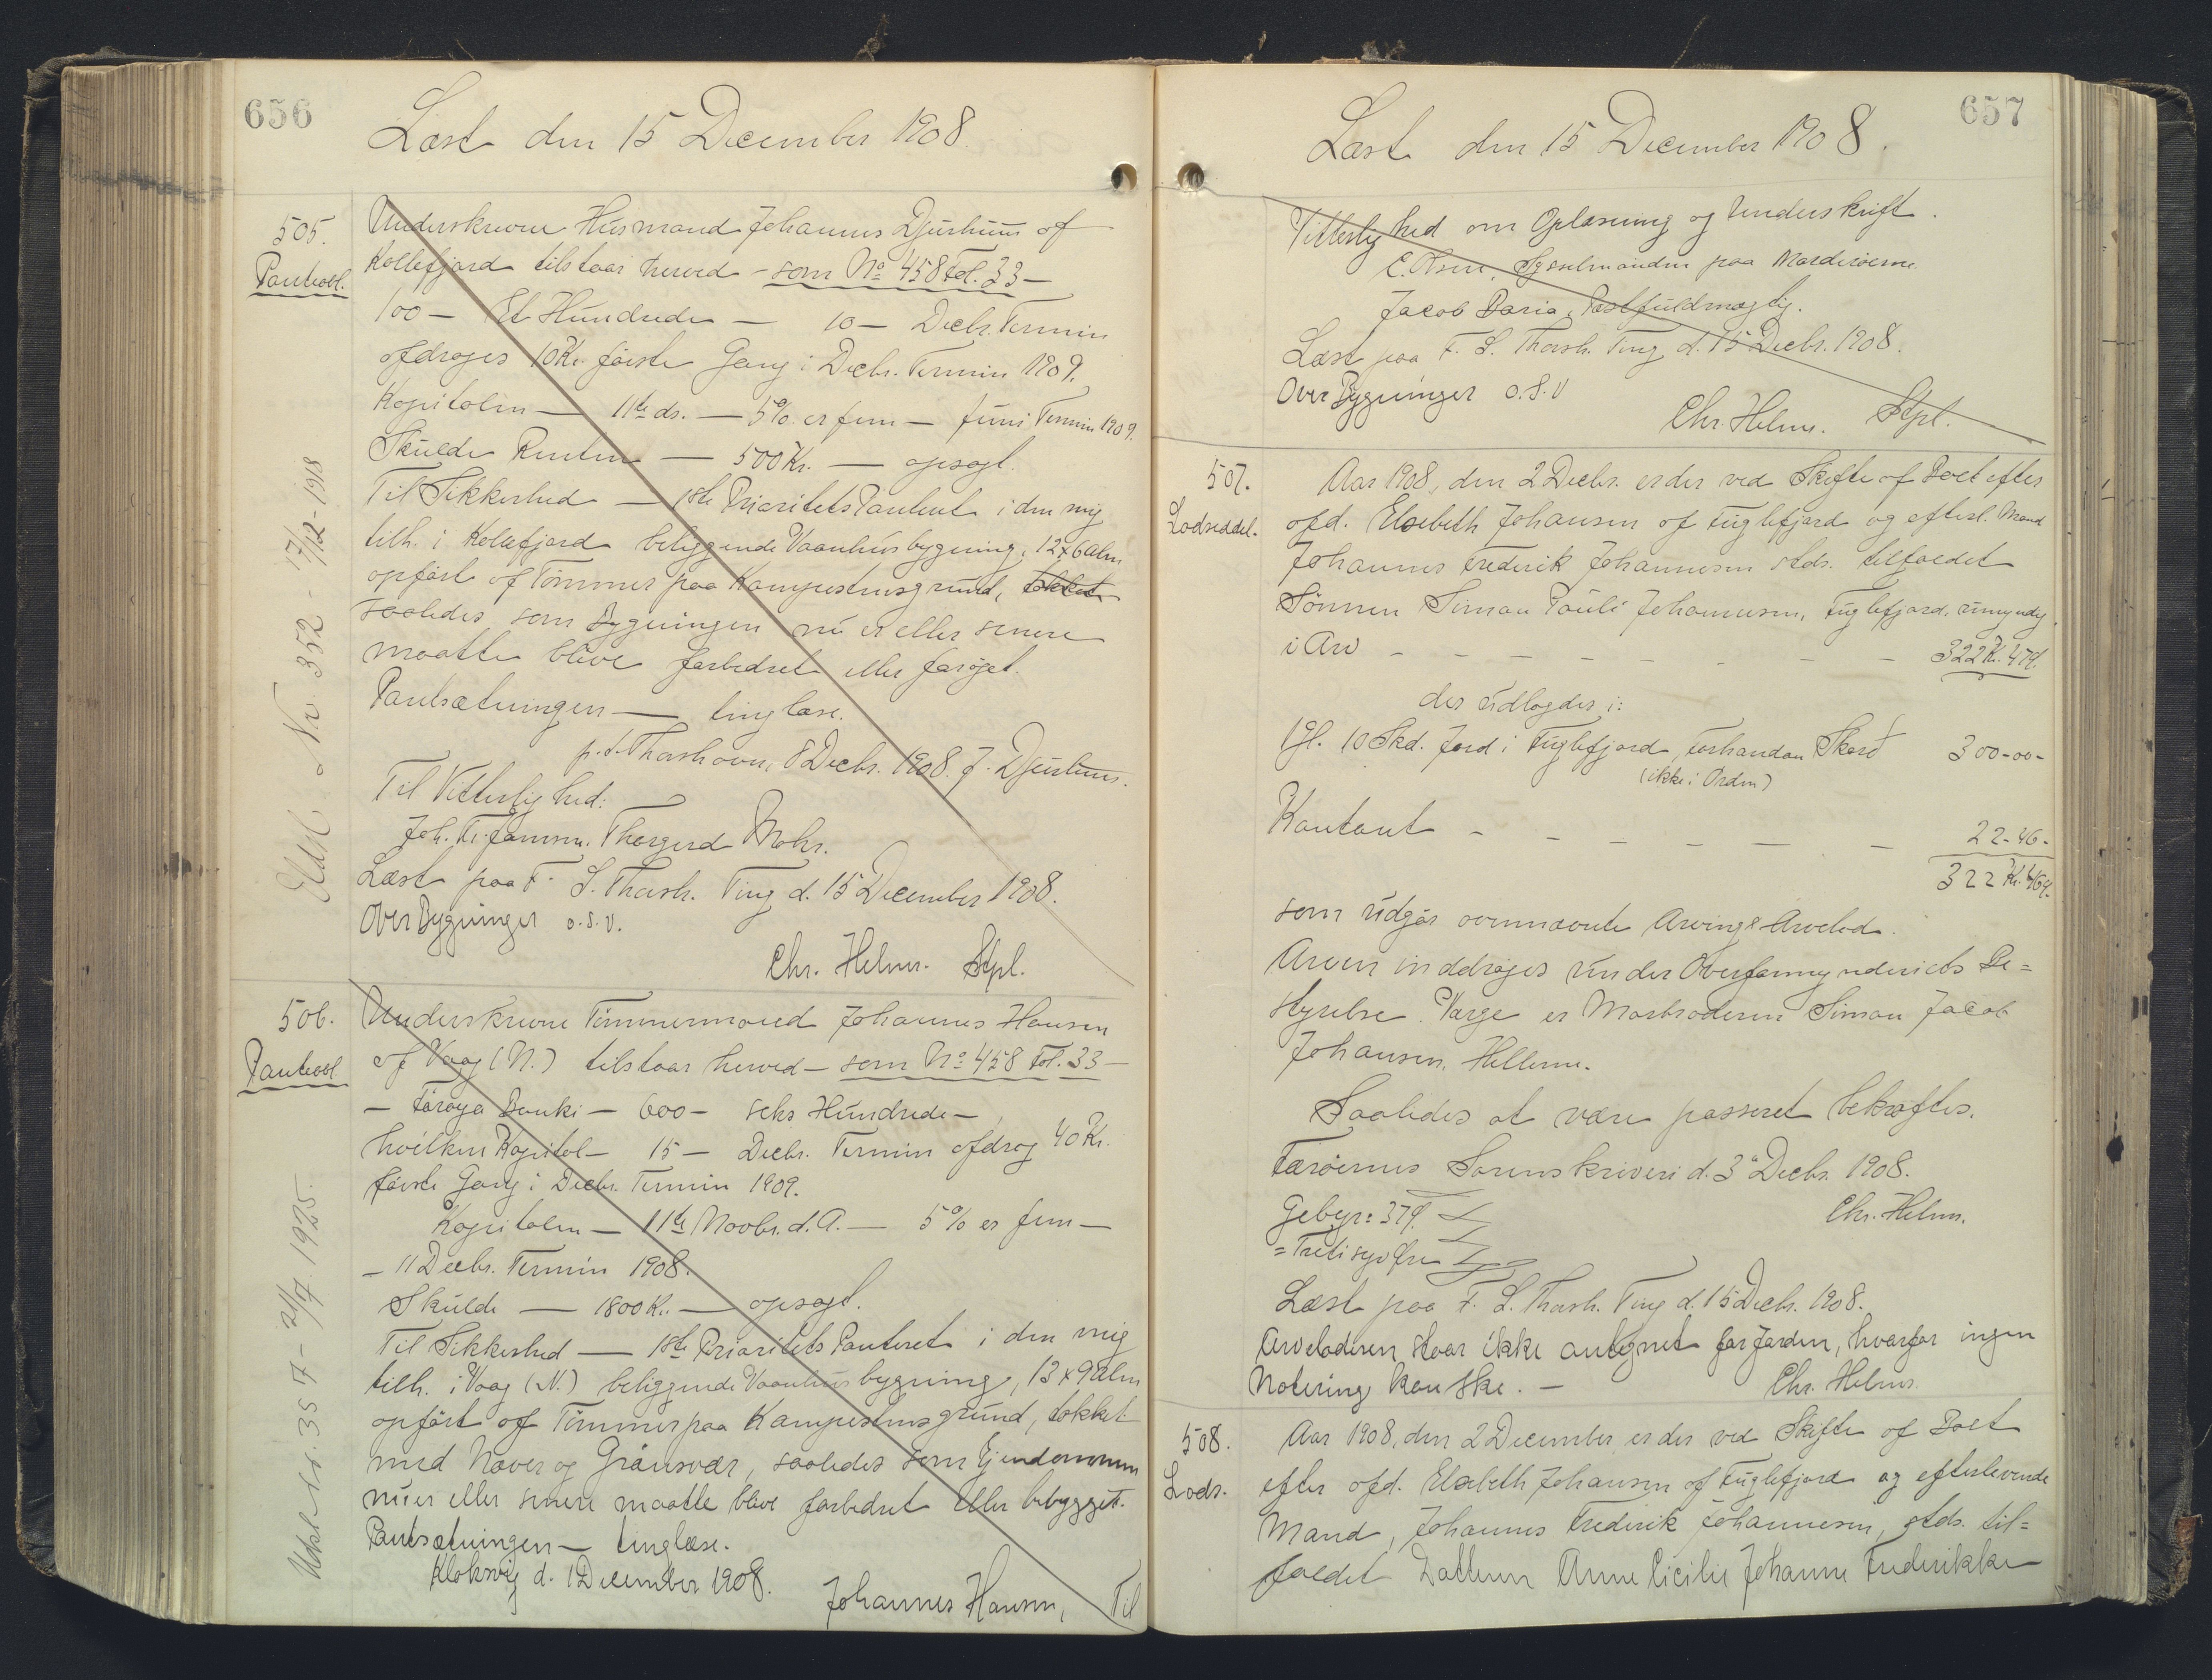 656
Læst den 15 December 1908.
505.
Panteobl.
Underskrevne Husmand Johannes Djurhuus af
Kollefjord tilstaar herved - som No 458 Fol. 33 -
100 - Et Hundrede - 10 - Decbr. Termin
afdrages 10 Kr. første Gang i Decbr. Termin 1909.
Kapitalen - 11te ds. - 5% er fem - Juni Termin 1909.
Skulde Renten - 500 Kr. - opsagt.
Til Sikkerhed - 1ste Prioritets Panteret i den mig
tilh. i Kollefjord beliggende Vaanhusbygning, 12 x 6 Aln
opført af Tømmer paa Kampestensgrund, tækket
saaledes som Bygningen nu er eller senere
maatte blive forbedret eller forøget.
Pantsætningen - tinglæse.
p.t. Thorshavn, 8 Decbr. 1908. J. Djurhuus.
Til Vitterlighed:
Joh. Kr. Thorgerd Mohr.
Læst paa F. S. Thorsh. Ting d. 15 December 1908.
Over Bygninger o.s.v.
Chr. Helms. Stpl.
Udsl. Nr. 352 - 17/12-1918
506.
Panteobl.
Underskrevne Tømmermand Johannes Hansen
af Vaag (N.) tilstaar herved - som No 458 Fol. 33 -
- Føroya Banki - 600 - seks Hundrede -
hvilken Kapital - 15 - Decbr. Termin afdrag 40 Kr.
første Gang i Decbr. Termin 1909.
Kapitalen - 11te Novbr. d. A. - 5% er fem -
- 11 Decbr. Termin 1908.
Skulde - 1800 Kr. - opsagt.
Til Sikkerhed - 1ste Prioritets Panteret i den mig
tilh. i Vaag (N.) beliggende Vaanhusbygning, 13 x 9 Aln
opført af Tømmer paa Kampestensgrund, tækket
med Næver og Grønsvær, saaledes som Ejendommen
nu er eller senere maatte blive forbedret eller bebygget.
Pantsætningen - tinglæse.
Klaksvig d. 1 December 1908.
Johannes Hansen,
Til
Udsl. Nr. 357 - 21/7. 1925.
657
Læst den 15 December 1908.
Vitterlighed om Oplæsning og Underskrift.
Sysselmanden paa Norderøerne.
Jacob Postfuldmægtig.
Læst paa F. S. Thorsh. Ting d. 15 Decbr. 1908.
Over Bygninger o.s.v
Chr. Helms. Stpl.
507.
Lodseddel.
Aar 1908, den 2 Decbr. er der ved Skifte af Boet efter
afd. Elsebeth Johansen af Fuglefjord og efterl. Mand
Johannes Frederik Johannesen stds. tilfaldet
Sønnen Simon Pauli Johannesen, Fuglefjord, umyndig.
i Arv - - - - - - - - 322 Kr. 47 Ø.
der udlagdes i:
1 Gl. 10 Skd. Jord i Fuglefjord, Forhandan Skarð 300-00-
(ikke i Orden)
Kontant - - - - - - 22-46-
322 Kr. 46 Ø.
som udgør ovennævnte Arvings Arvelod.
Arven inddrages under Overformynderiets Be=
styrelse. Værge er Morbroderen Simon Jacob
Johansen, Hellerne.
Saaledes at være passeret bekræftes.
Færøernes Sorenskriveri d. 3 Decbr. 1908.
Gebyr: 37 Ø.
Chr. Helms.
= Tretisyv Øre
Læst paa F. S. Thorsh. Ting d. 15 Decbr. 1908.
Arveladeren staar ikke antegnet for Jorden, hvorfor ingen
Notering kan ske. -
Chr. Helms.
508.
Lods.
Aar 1908, den 2 December er der ved Skifte af Boet
efter afd. Elsebeth Johansen af Fuglefjord og efterlevende
Mand, Johannes Frederik Johannesen, stds. til=
faldet Datteren Anne Cicilie Johanne Frederikke